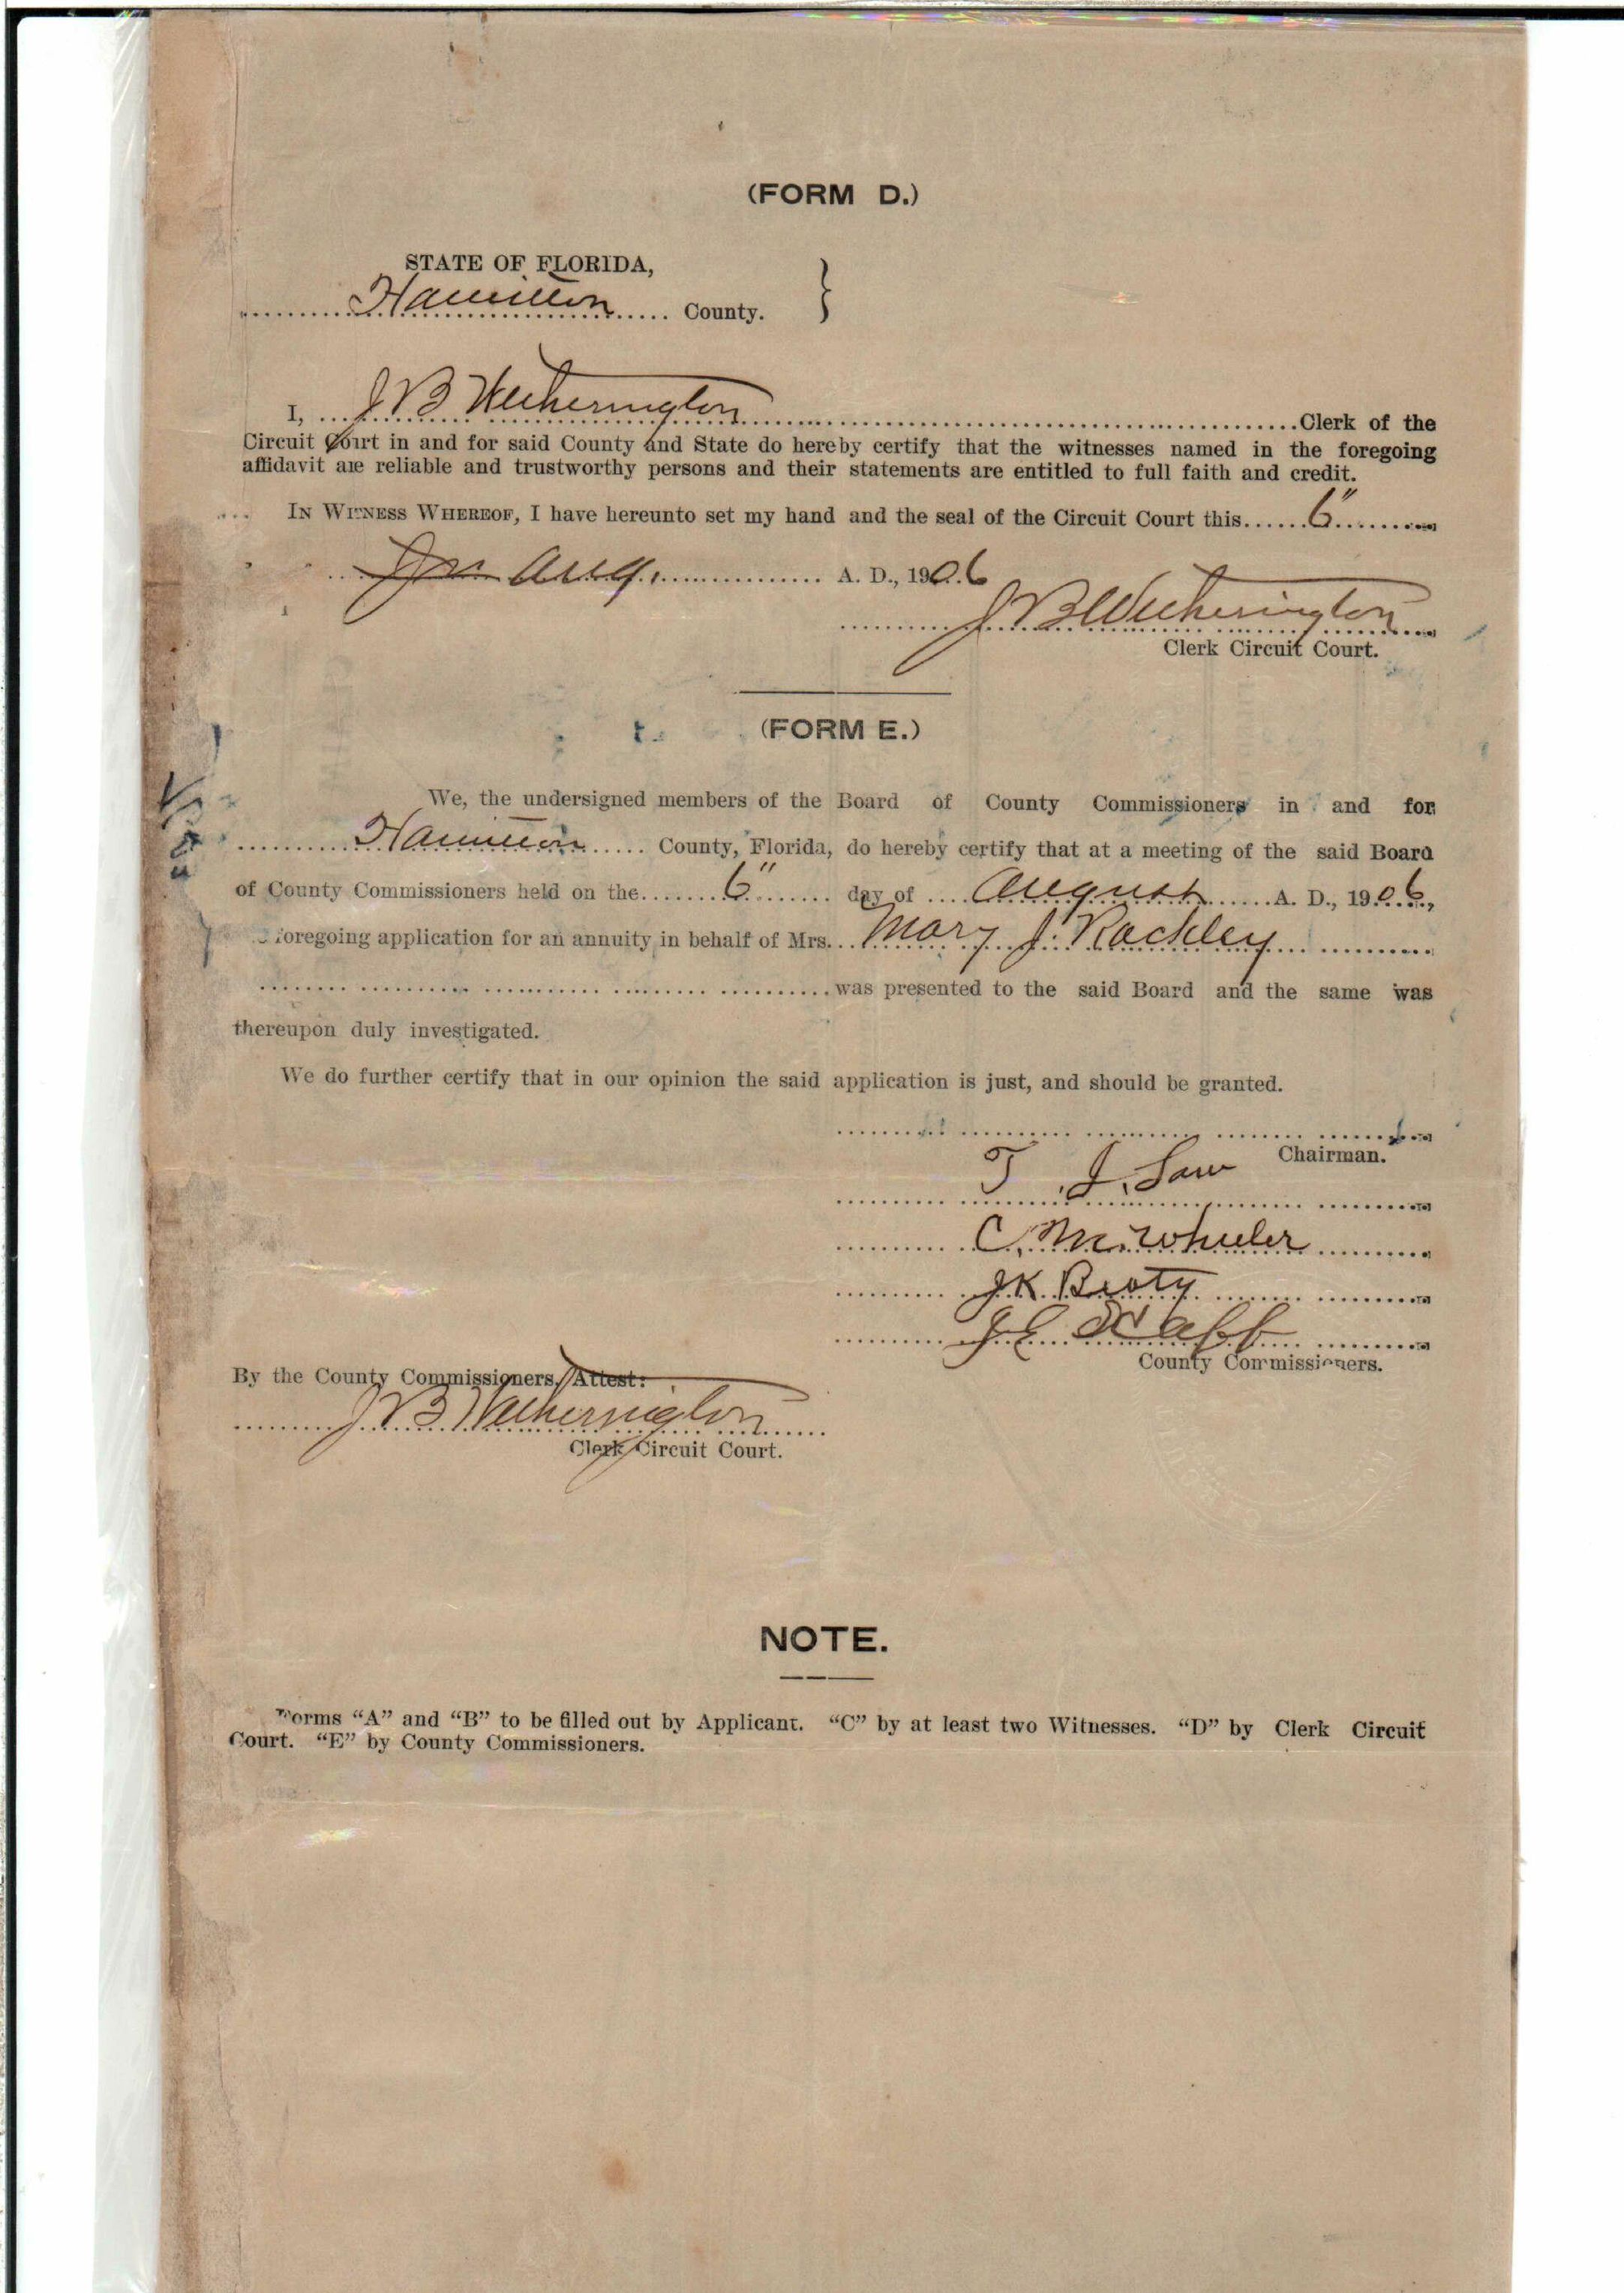 (FORM D.)
STATE OF FLORIDA,
Hamilton County.
I, J B Wetherington Clerk of the
Circuit Court in and for said County and State do hereby certify that the witnesses named in the foregoing
affidavit are reliable and trustworthy persons and their statements are entitled to full faith and credit.
IN WITNESS WHEREOF, I have hereunto set my hand and the seal of the Circuit Court this 6"
Aug. A. D., 1906
J B Wetherington
Clerk Circuit Court.
(FORM E.)
We, the undersigned members of the Board of County Commissioners in and for
Hamilton County, Florida, do hereby certify that at a meeting of the said Board
of County Commissioners held on the 6" day of August A. D., 1906,
foregoing application for an annuity in behalf of Mrs. Mary J. Rackley
was presented to the said Board and the same was
thereupon duly investigated.
We do further certify that in our opinion the said application is just, and should be granted.
Chairman.
T. J. Law
C. M. Wheeler
J K Beaty
J E
County Commissioners.
By the County Commissioners, Attest:
J B Wetherington
Clerk Circuit Court.
NOTE.
Forms "A" and "B" to be filled out by Applicant. "C" by at least two Witnesses. "D" by Clerk Circuit
Court. "E" by County Commissioners.